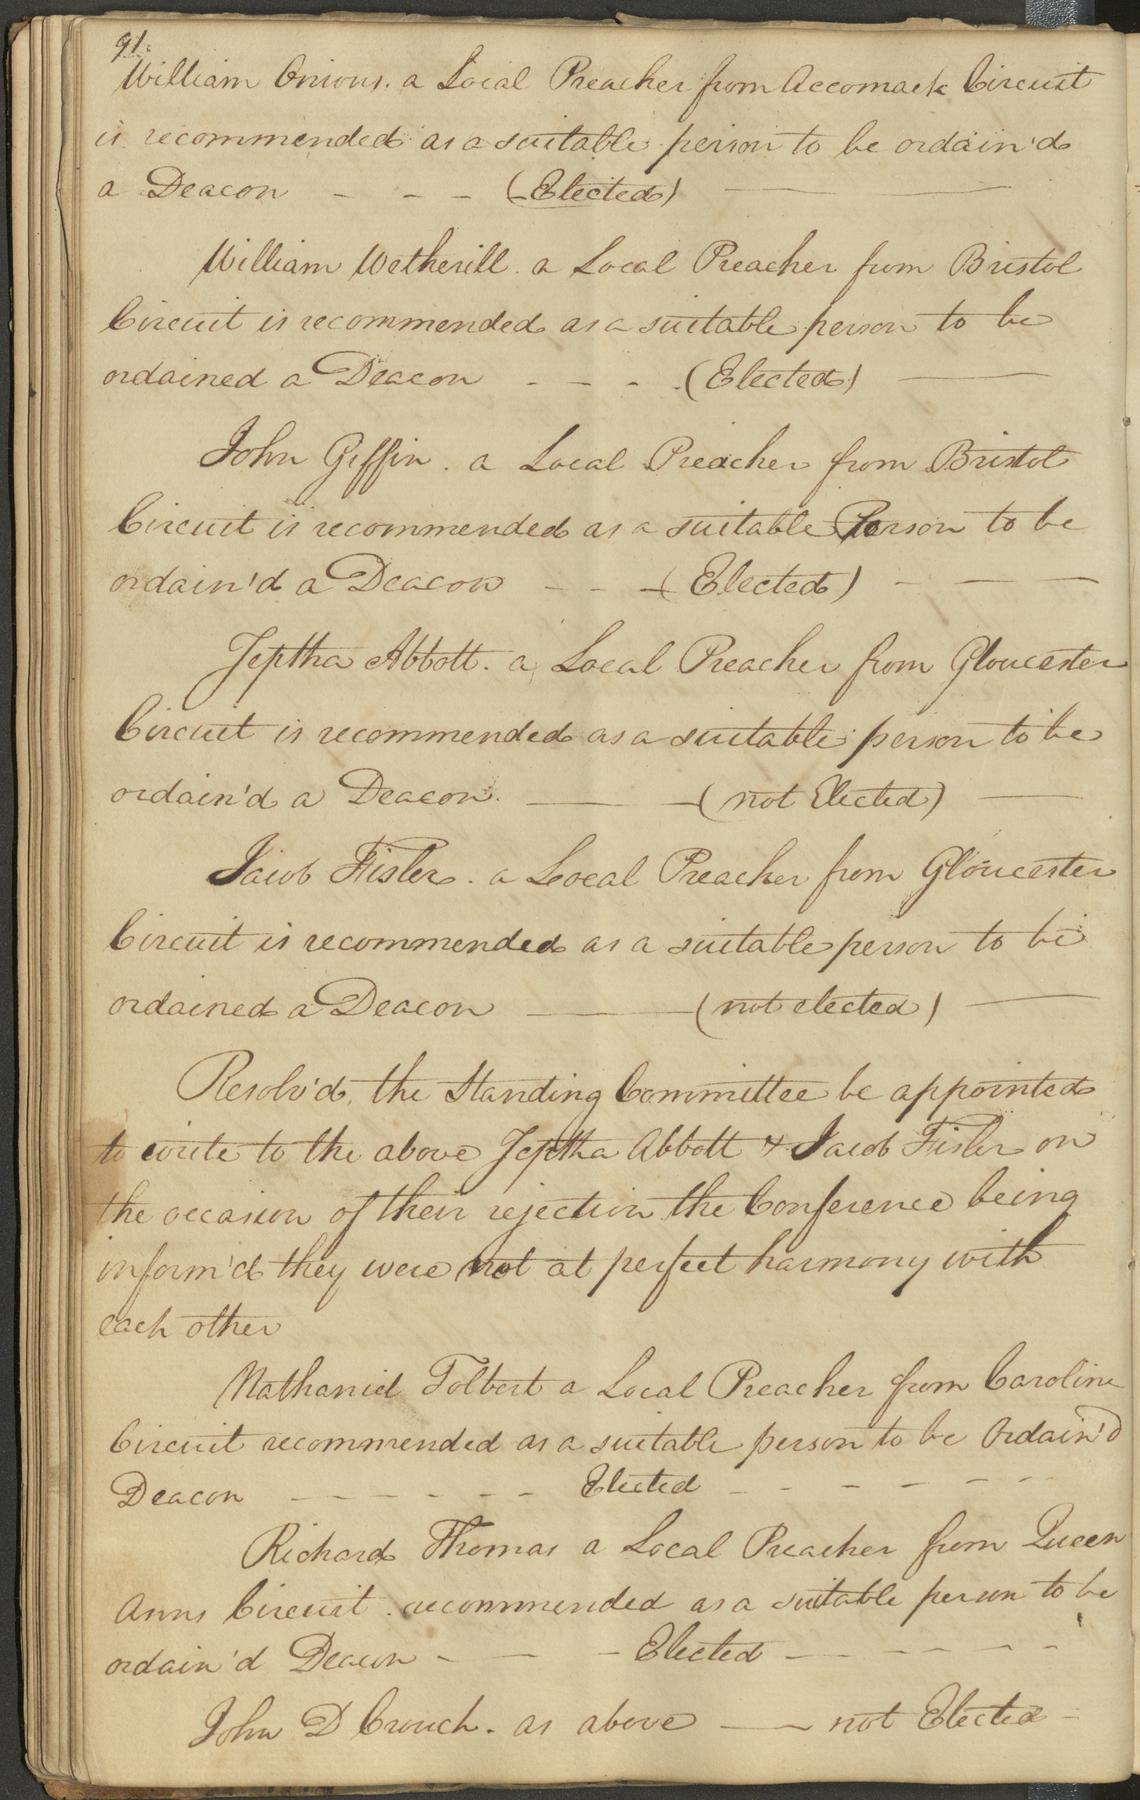 91.
William Onions. a Local Preacher from Accomack Circuit
is recommended as a suitable person to be ordain'd
a Deacon - - - (Elected) —
William Wetherill. a Local Preacher from Bristol
Circuit is recommended as a suitable person to be
ordained a Deacon - - - . (Elected) —
John Giffin. a Local Preacher from Bristol
Circuit is recommended as a suitable Person to be
ordain'd a Deacon - - - (Elected) - — —
Jeptha Abbott. a Local Preacher from Gloucester
Circuit is recommended as a suitable person to be
ordain'd a Deacon. — — (not Elected) —
Jacob Fisler. a Local Preacher from Gloucester
Circuit is recommended as a suitable person to be
ordained a Deacon — — (not elected) —
Resolv'd, the Standing Committee be appointed
to write to the above Jeptha Abbott & Jacob Fisler on
the occasion of their rejection the Conference being
inform'd they were not at perfect harmony with
each other
Nathaniel Tolbert a Local Preacher from Caroline
Circuit recommended as a suitable person to be Ordain'd
Deacon — - - - - - Elected - - - - - -
Richard Thomas a Local Preacher from Queen
Anns Circuit. recommended as a suitable person to be
ordain'd Deacon - — - Elected — - - - -
John D Crouch. as above — not Elected -